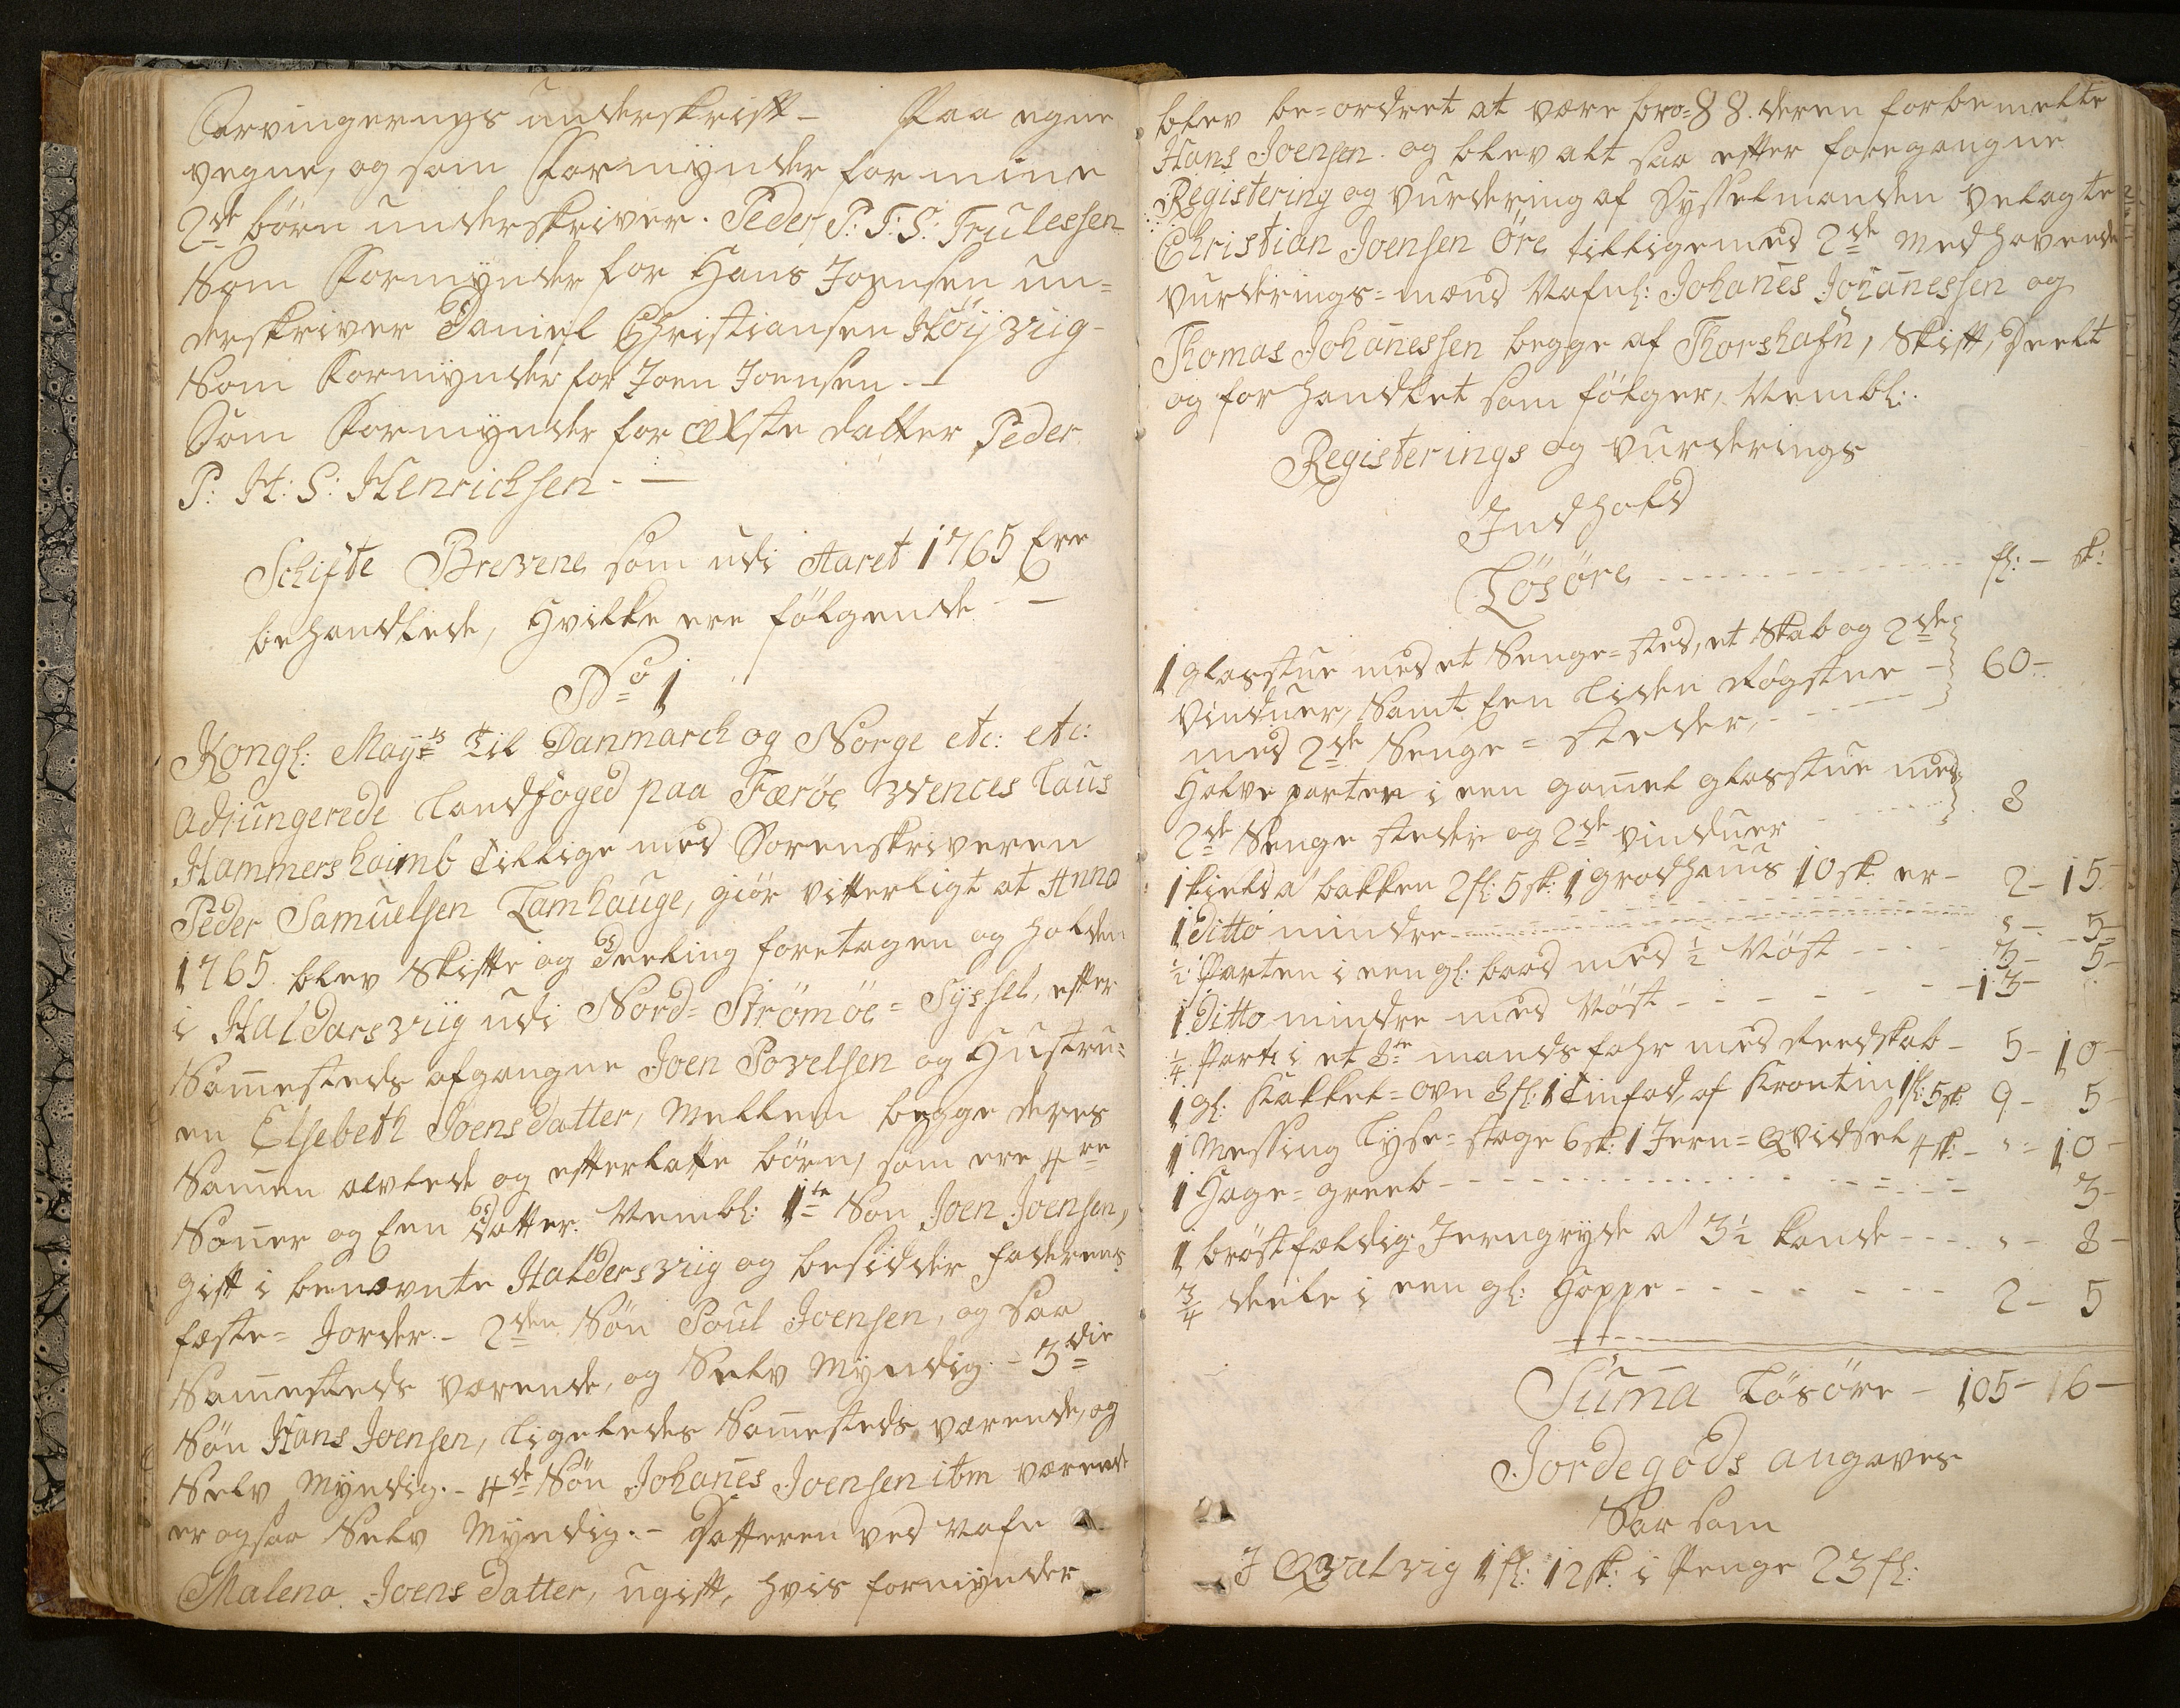 Arvingernes underskrift - Paa egne
vegne, og som Formynder for mine
2de börn underskriver. Peder P: T: S: Trulessen
Som Formynder for Hans Joensen un=
derskriver Daniel Christiansen Höijviig -
Som Formynder for Joen Joensen. -
Som Formynder for ælste datter Peder
P: H: S: Henrichsen. -
Schifte Brevene som udi Aaret 1765 Ere
behandlede, Hvilke ere fölgende -
No 1
Kongl: Mayts til Danmarch og Norge etc: etc:
adjungerede Landfoged paa Færöe Wences Laus
Hammershaimb tillige med Sorenskriveren
Peder Samuelsen Lamhauge, giör vitterligt at Anno
1765 blev Skifte og Deeling foretagen og holden
i Haldarsviig udi Nord= Strömöe= Syssel, efter
Sam̄esteds afgangne Joen Povelsen og Hustru=
en Elsebeth Joensdatter, Mellem begge deres
Sam̄en avlede og efterlatte börn, som ere 4re
Sön̄er og Een Datter. Nembl: 1te Sön Joen Joensen,
gift i benævnte Haldersviig og besidder faderens
fæste= Jorder. - 2den Sön Poul Joensen, og saa
Sam̄esteds værende, og Selv Myndig. - 3die
Sön Hans Joensen, ligeledes Sam̄esteds værende, og
Selv Myndig. - 4de Sön Johan̄es Joensen ibm værende
er ogsaa Selv Myndig. - Datteren ved Nafn
Malena Joensdatter, ugift, hvis formynder
blev be=ordret at være bro= deren forbemelte
Hans Joensen. og blev alt saa efter foregangne
Registering og vurdering af Sysselmanden velagte
Christian Joensen Öre tilligemed 2de medhavende
vurderings=mænd Nafnl: Johan̄es Johan̄essen og
Thomas Johan̄essen begge af Thorshafn, Skift, Deelt
og for handlet som fölger, Nembl:
Registerings og vurderings
Indhold
Lösöre - fl: - sk:
1 glasstue med et Senge=sted, et Skab og 2de
vinduer, Samt Een liden Rögstue - 60 -
med 2de Senge=steder, -
Halve parten i een gam̄el glasstue med
2de Senge steder og 2de vinduer - 8
1 kield a' bakken 2 fl: 5 sk: 1 grodhuus 10 sk: er - 2 - 15
1 Ditto mindre - " - 5 -
1/2 Parten i een gl: baad med 1/2 Nöst - 3 - 5 -
1 Ditto mindre med Nöst - 13 -
1/4 Part i et 8te mandsfahr med Reedskab - 5 - 10 -
1 gl: Kakkel=ovn 8 fl: 1 tinfad af Krontin 1 fl: 5 sk: 9 - 5 -
1 Messing lyse=stage 6 sk: 1 Jern= Qvidsel 4 sk: - " - 10 -
1 Hage=greeb - 3 -
1 bröstfældig Jerngryde a' 3 1/2 kande - " - 8 -
3/4 deele i een gl: Hoppe - 2 - 5
Sum̄a Lösöre - 105 - 16 -
Jordegods angaves
Saa som
I Qvalviig 1 fl: 12 sk: i Penge 23 fl: